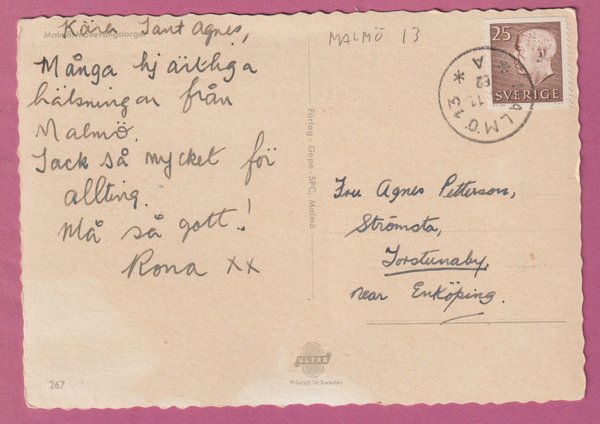 Malmö. Möllevångstorget
Kära Tant Agnes,
Många hjärtliga
hälsningar från
Malmö.
Tack så mycket för
allting.
Må så gott!
Rona xx
MALMÖ 13
25
SVERIGE
MALMÖ 13
A
Förlag: Gepe - SPC, Malmö
Fru Agnes Petterson,
Strömsta,
Torstunaby,
near Enköping.
ULTRA
Printed in Sweden
267